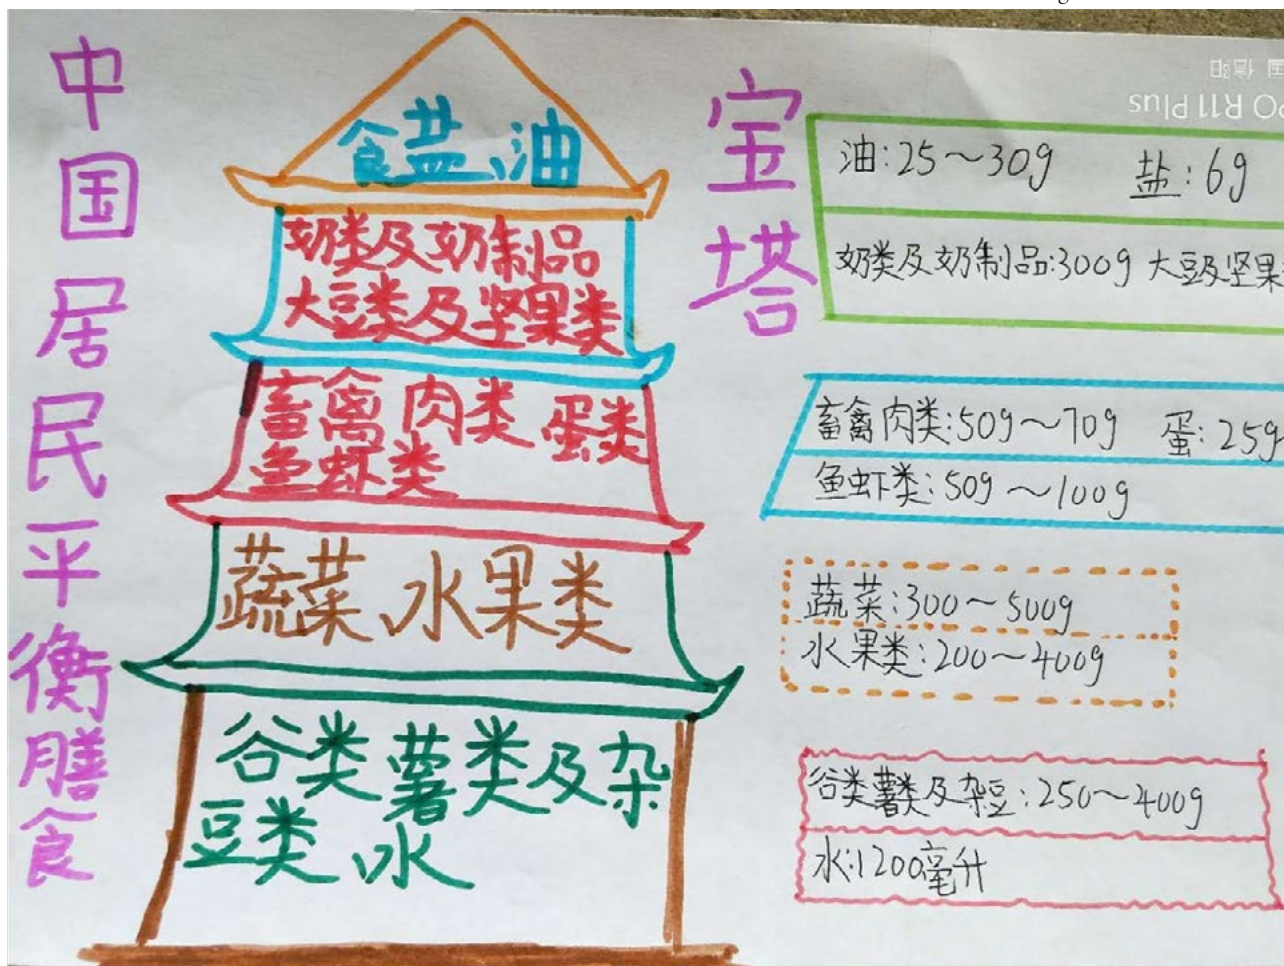 中国居民平衡膳食
宝塔
食盐、油
奶类及奶制品
大豆类及坚果类
畜禽肉类 蛋类
鱼虾类
蔬菜、水果类
谷类薯类及杂
豆类、水
油:25～30g 盐:6g
奶类及奶制品:300g 大豆及坚果
畜禽肉类:50g～70g 蛋:25g
鱼虾类:50g～100g
蔬菜:300～500g
水果类:200～400g
谷类薯类及杂豆:250～400g
水:1200毫升
PO R11 Plus
国 信阳